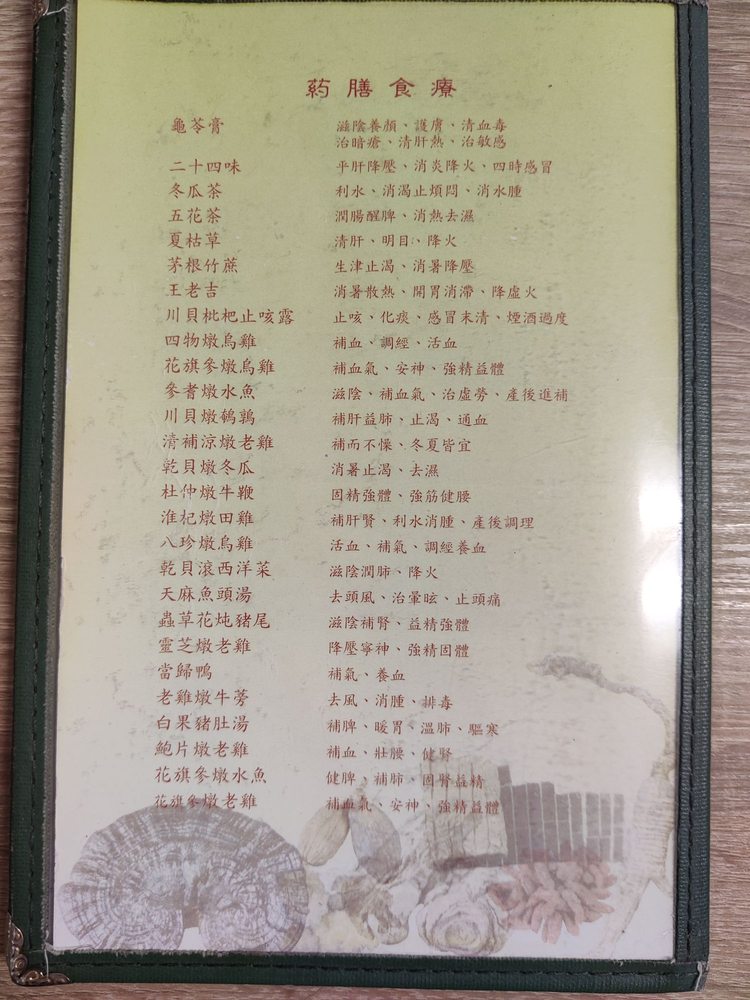 药膳食療
龜苓膏 滋陰養顏、護膚、清血毒
治暗瘡、清肝熱、治敏感
二十四味 平肝降壓、消炎降火、四時感冒
冬瓜茶 利水、消渴止煩悶、消水腫
五花茶 潤腸醒脾、消熱去濕
夏枯草 清肝、明目、降火
茅根竹蔗 生津止渴、消暑降壓
王老吉 消暑散熱、開胃消滯、降虛火
川貝枇杷止咳露 止咳、化痰、感冒末清、煙酒過度
四物燉烏雞 補血、調經、活血
花旗參燉烏雞 補血氣、安神、強精益體
參耆燉水魚 滋陰、補血氣、治虛勞、產後進補
川貝燉鵪鶉 補肝益肺、止渴、通血
清補涼燉老雞 補而不燥、冬夏皆宜
乾貝燉冬瓜 消暑止渴、去濕
杜仲燉牛鞭 固精強體、強筋健腰
淮杞燉田雞 補肝腎、利水消腫、產後調理
八珍燉烏雞 活血、補氣、調經養血
乾貝滾西洋菜 滋陰潤肺、降火
天麻魚頭湯 去頭風、治暈眩、止頭痛
蟲草花炖豬尾 滋陰補腎、益精強體
靈芝燉老雞 降壓寧神、強精固體
當歸鴨 補氣、養血
老雞燉牛蒡 去風、消腫、排毒
白果豬肚湯 補脾、暖胃、溫肺、驅寒
鮑片燉老雞 補血、壯腰、健腎
花旗參燉水魚 健脾、補肺、固腎益精
花旗參燉老雞 補血氣、安神、強精益體